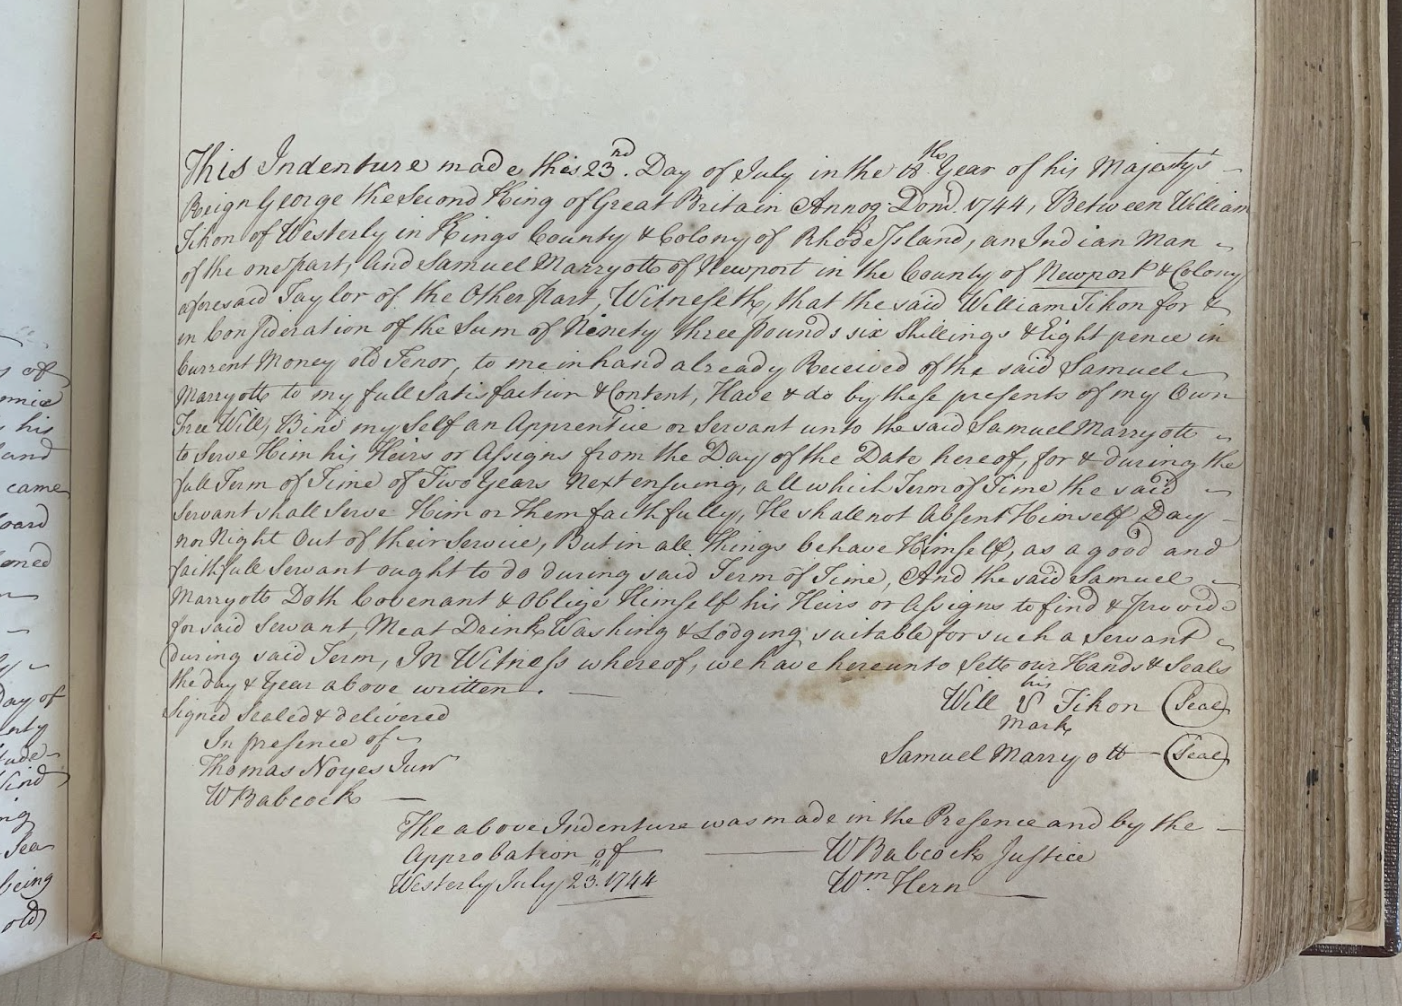 This Indenture made this 23rd. Day of July in the 18th Year of his Majesty's
Reign George the Second King of Great Britain Annoq. Domi. 1744, Between William
Tikon of Westerly in Kings County & Colony of Rhode Island, an Indian Man
of the one part, And Samuel Marryott of Newport in the County of Newport & Colony
aforesaid Taylor of the Other part, Witnesseth, that the said William Tikon for &
in Consideration of the Sum of Ninety three pounds six Shillings & Eight pence in
Current Money old Tenor, to me in hand already Received of the said Samuel
Marryott to my full Satisfaction & Content, Have & do by these presents of my Own
Free Will, Bind my Self an Apprentice or Servant unto the said Samuel Marryott
to Serve Him his Heirs or Assigns from the Day of the Date hereof, for & during the
full Term of Time of Two Years next ensuing, all which Term of Time the said
Servant shall Serve Him or them faithfully, He shall not Absent Himself Day
nor Night Out of their Service, But in all Things behave Himself, as a good and
faithfull Servant ought to do during said Term of Time, And the said Samuel
Marryott Doth Covenant & Oblige Himself his Heirs or Assigns to find & provide
for said Servant, Meat Drink Washing & Lodging suitable for such a Servant
during said Term, In Witness whereof, we have hereunto Sett our Hands & Seals
the day & Year above written.
Signed Sealed & delivered
In presence of
Thomas Noyes Junr
W Babcock
his
Will Tikon Seal
Mark
Samuel Marryott Seal
The above Indenture was made in the Presence and by the
Approbation of W Babcock Justice
Westerly July 23. 1744 Wm. Hern
of
mnce
his
and
came
board
oned
Day of
being
old